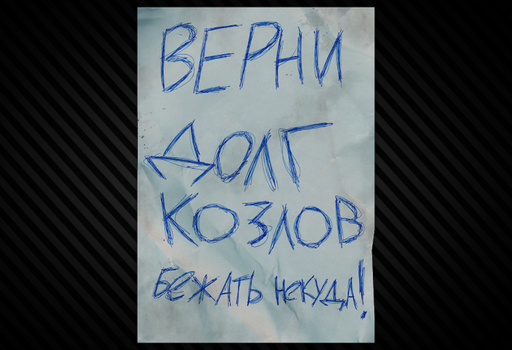 ВЕРНИ
ДОЛГ
КОЗЛОВ
БЕЖАТЬ НЕКУДА!